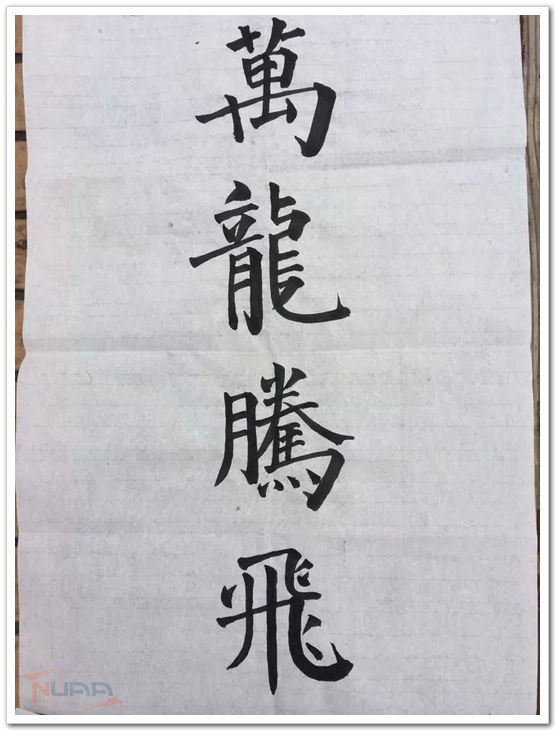 萬龍騰飛
NUAA